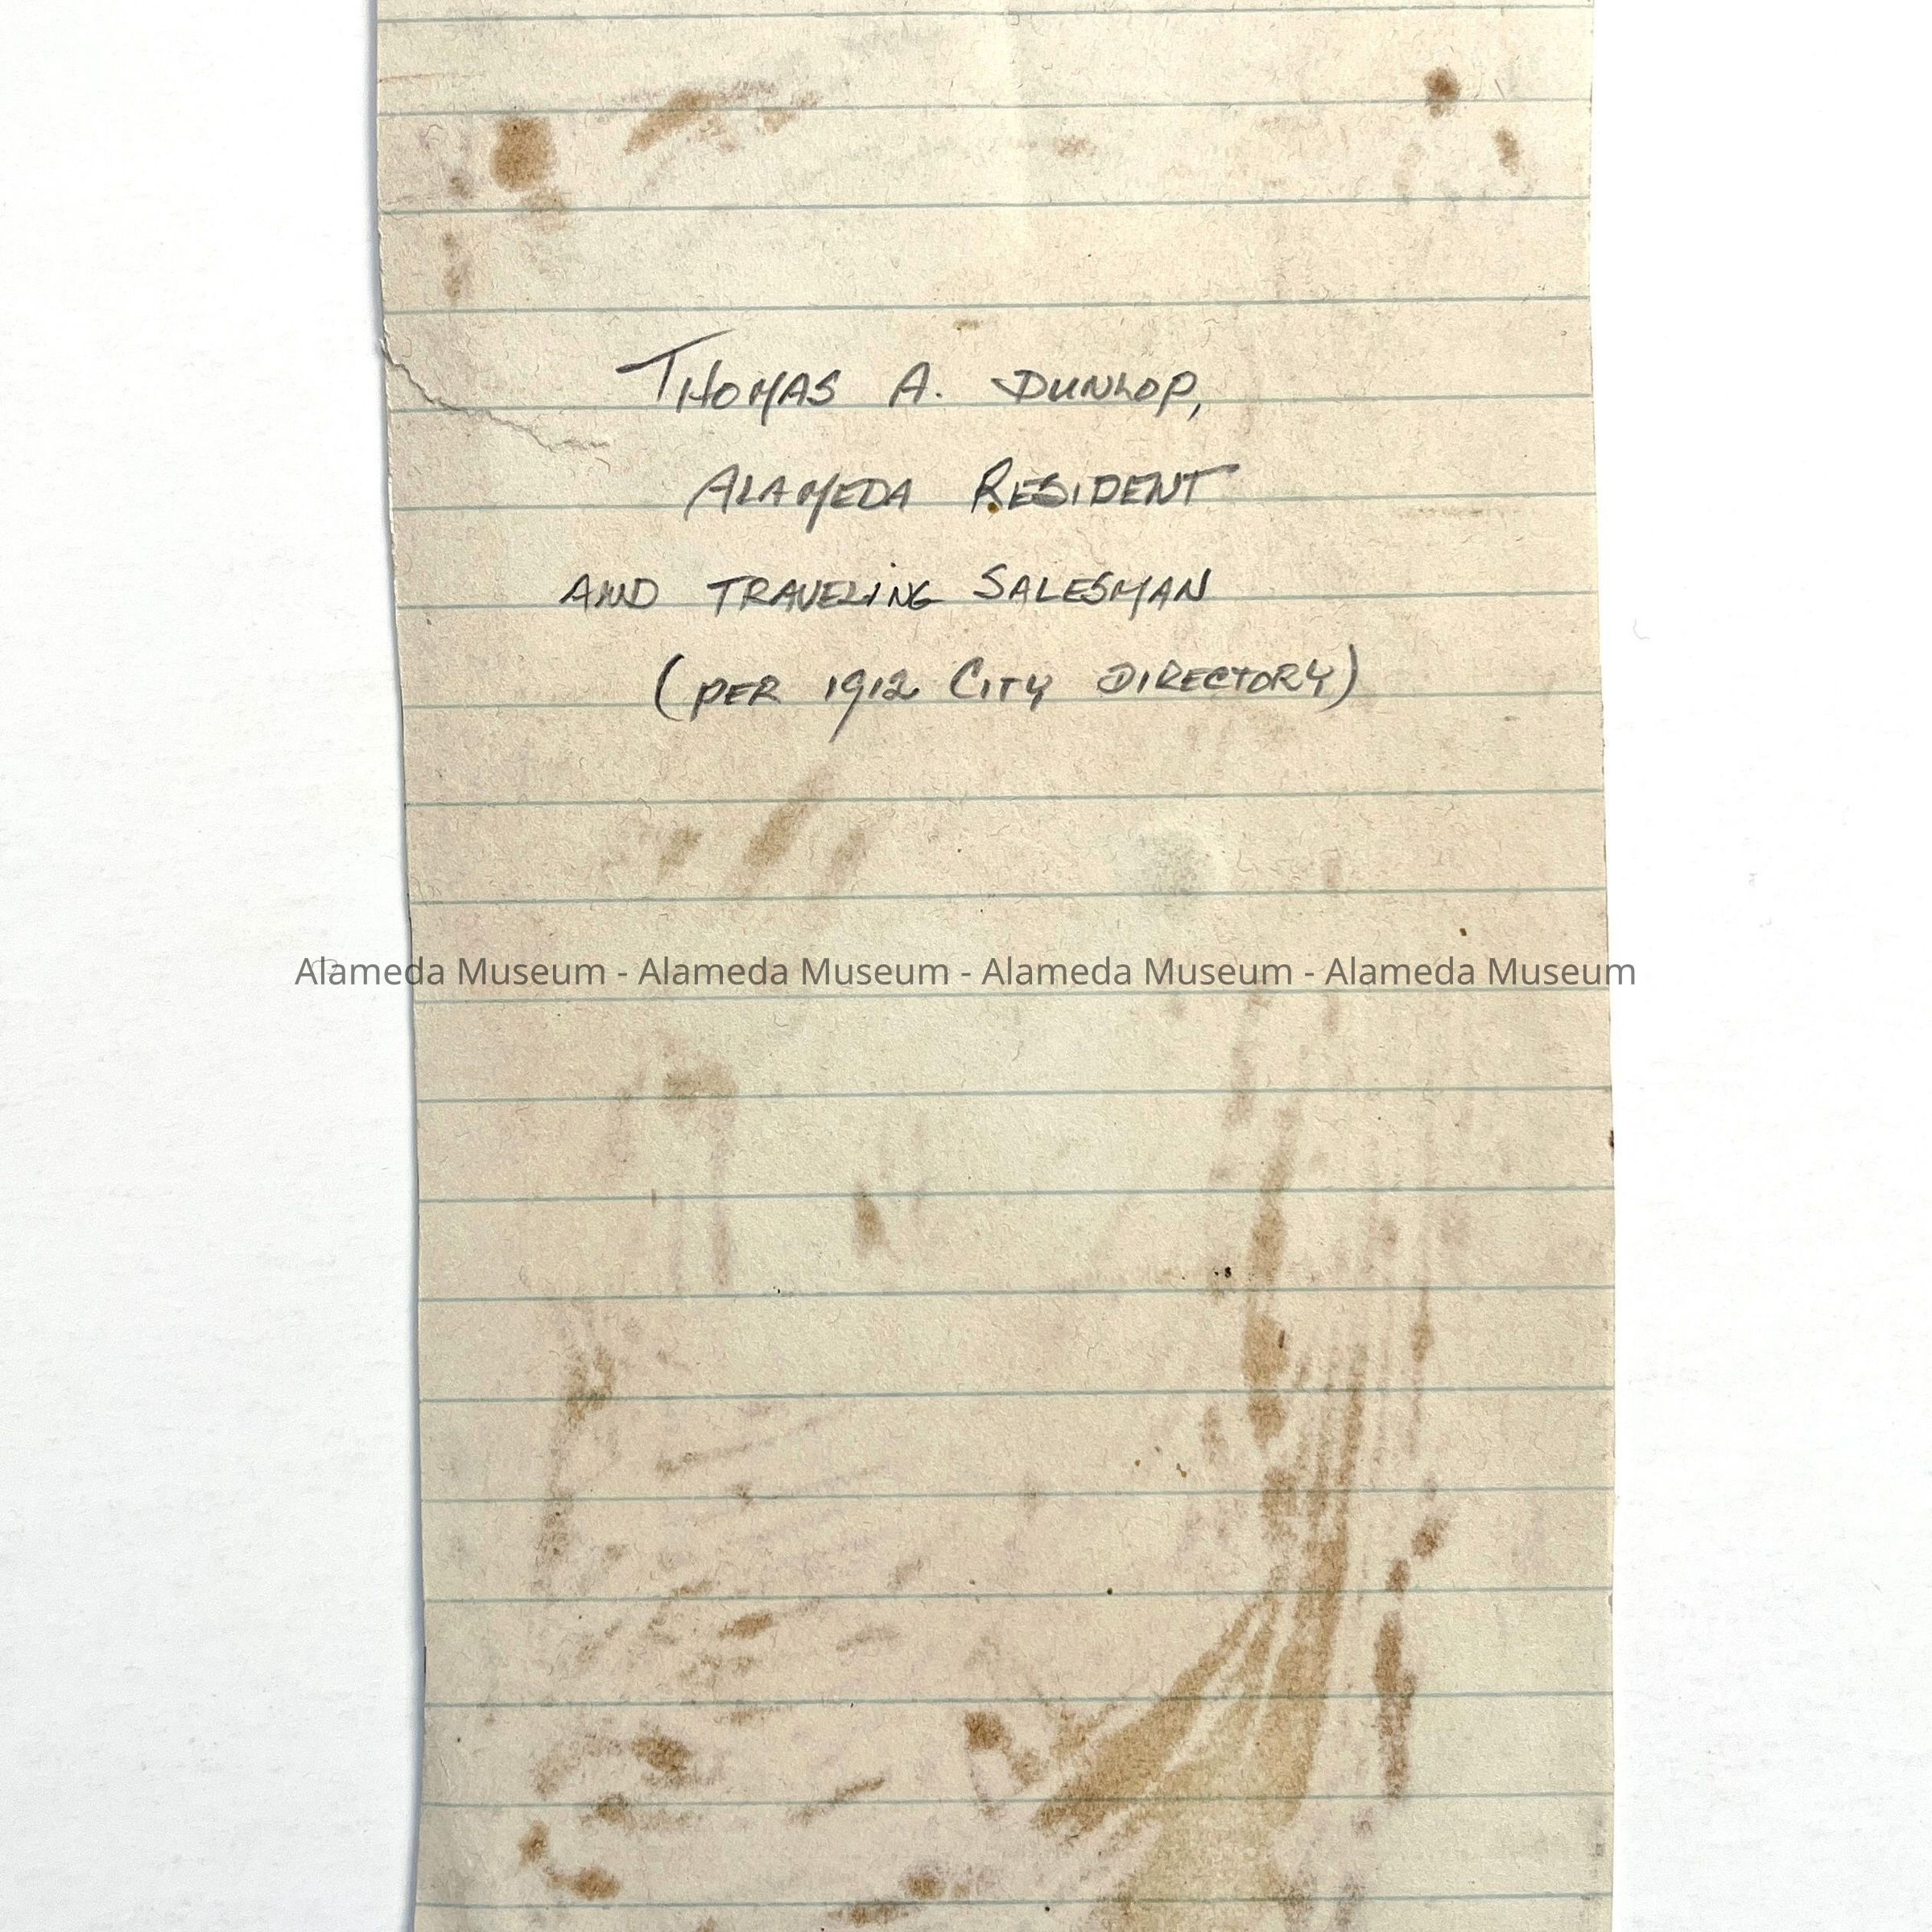 Thomas A. Dunlop,
Alameda Resident
and traveling Salesman
(per 1912 City Directory)
Alameda Museum - Alameda Museum - Alameda Museum - Alameda Museum